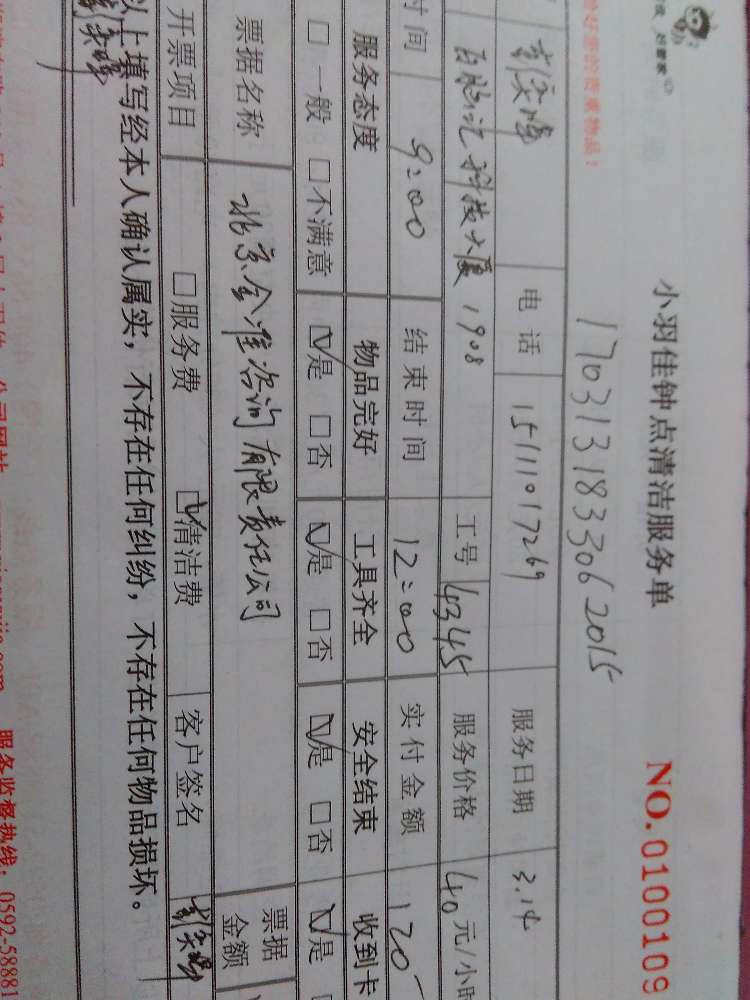 小羽佳钟点清洁服务单
NO.0100109
1703131833062015
电话 15111017269 服务日期 3.14
科技大厦1908 工号 4345 服务价格 40元/小时
时间 9:00 结束时间 12:00 实付金额 120
服务态度 物品完好 工具齐全 安全结束 收到卡
□一般 □不满意 ☑是 □否 ☑是 □否 ☑是 □否 ☑是
票据名称 北京金准咨询有限责任公司 票据金额
开票项目 □服务费 ☑清洁费 客户签名
以上填写经本人确认属实，不存在任何纠纷，不存在任何物品损坏。
服务监督热线：0592-58881